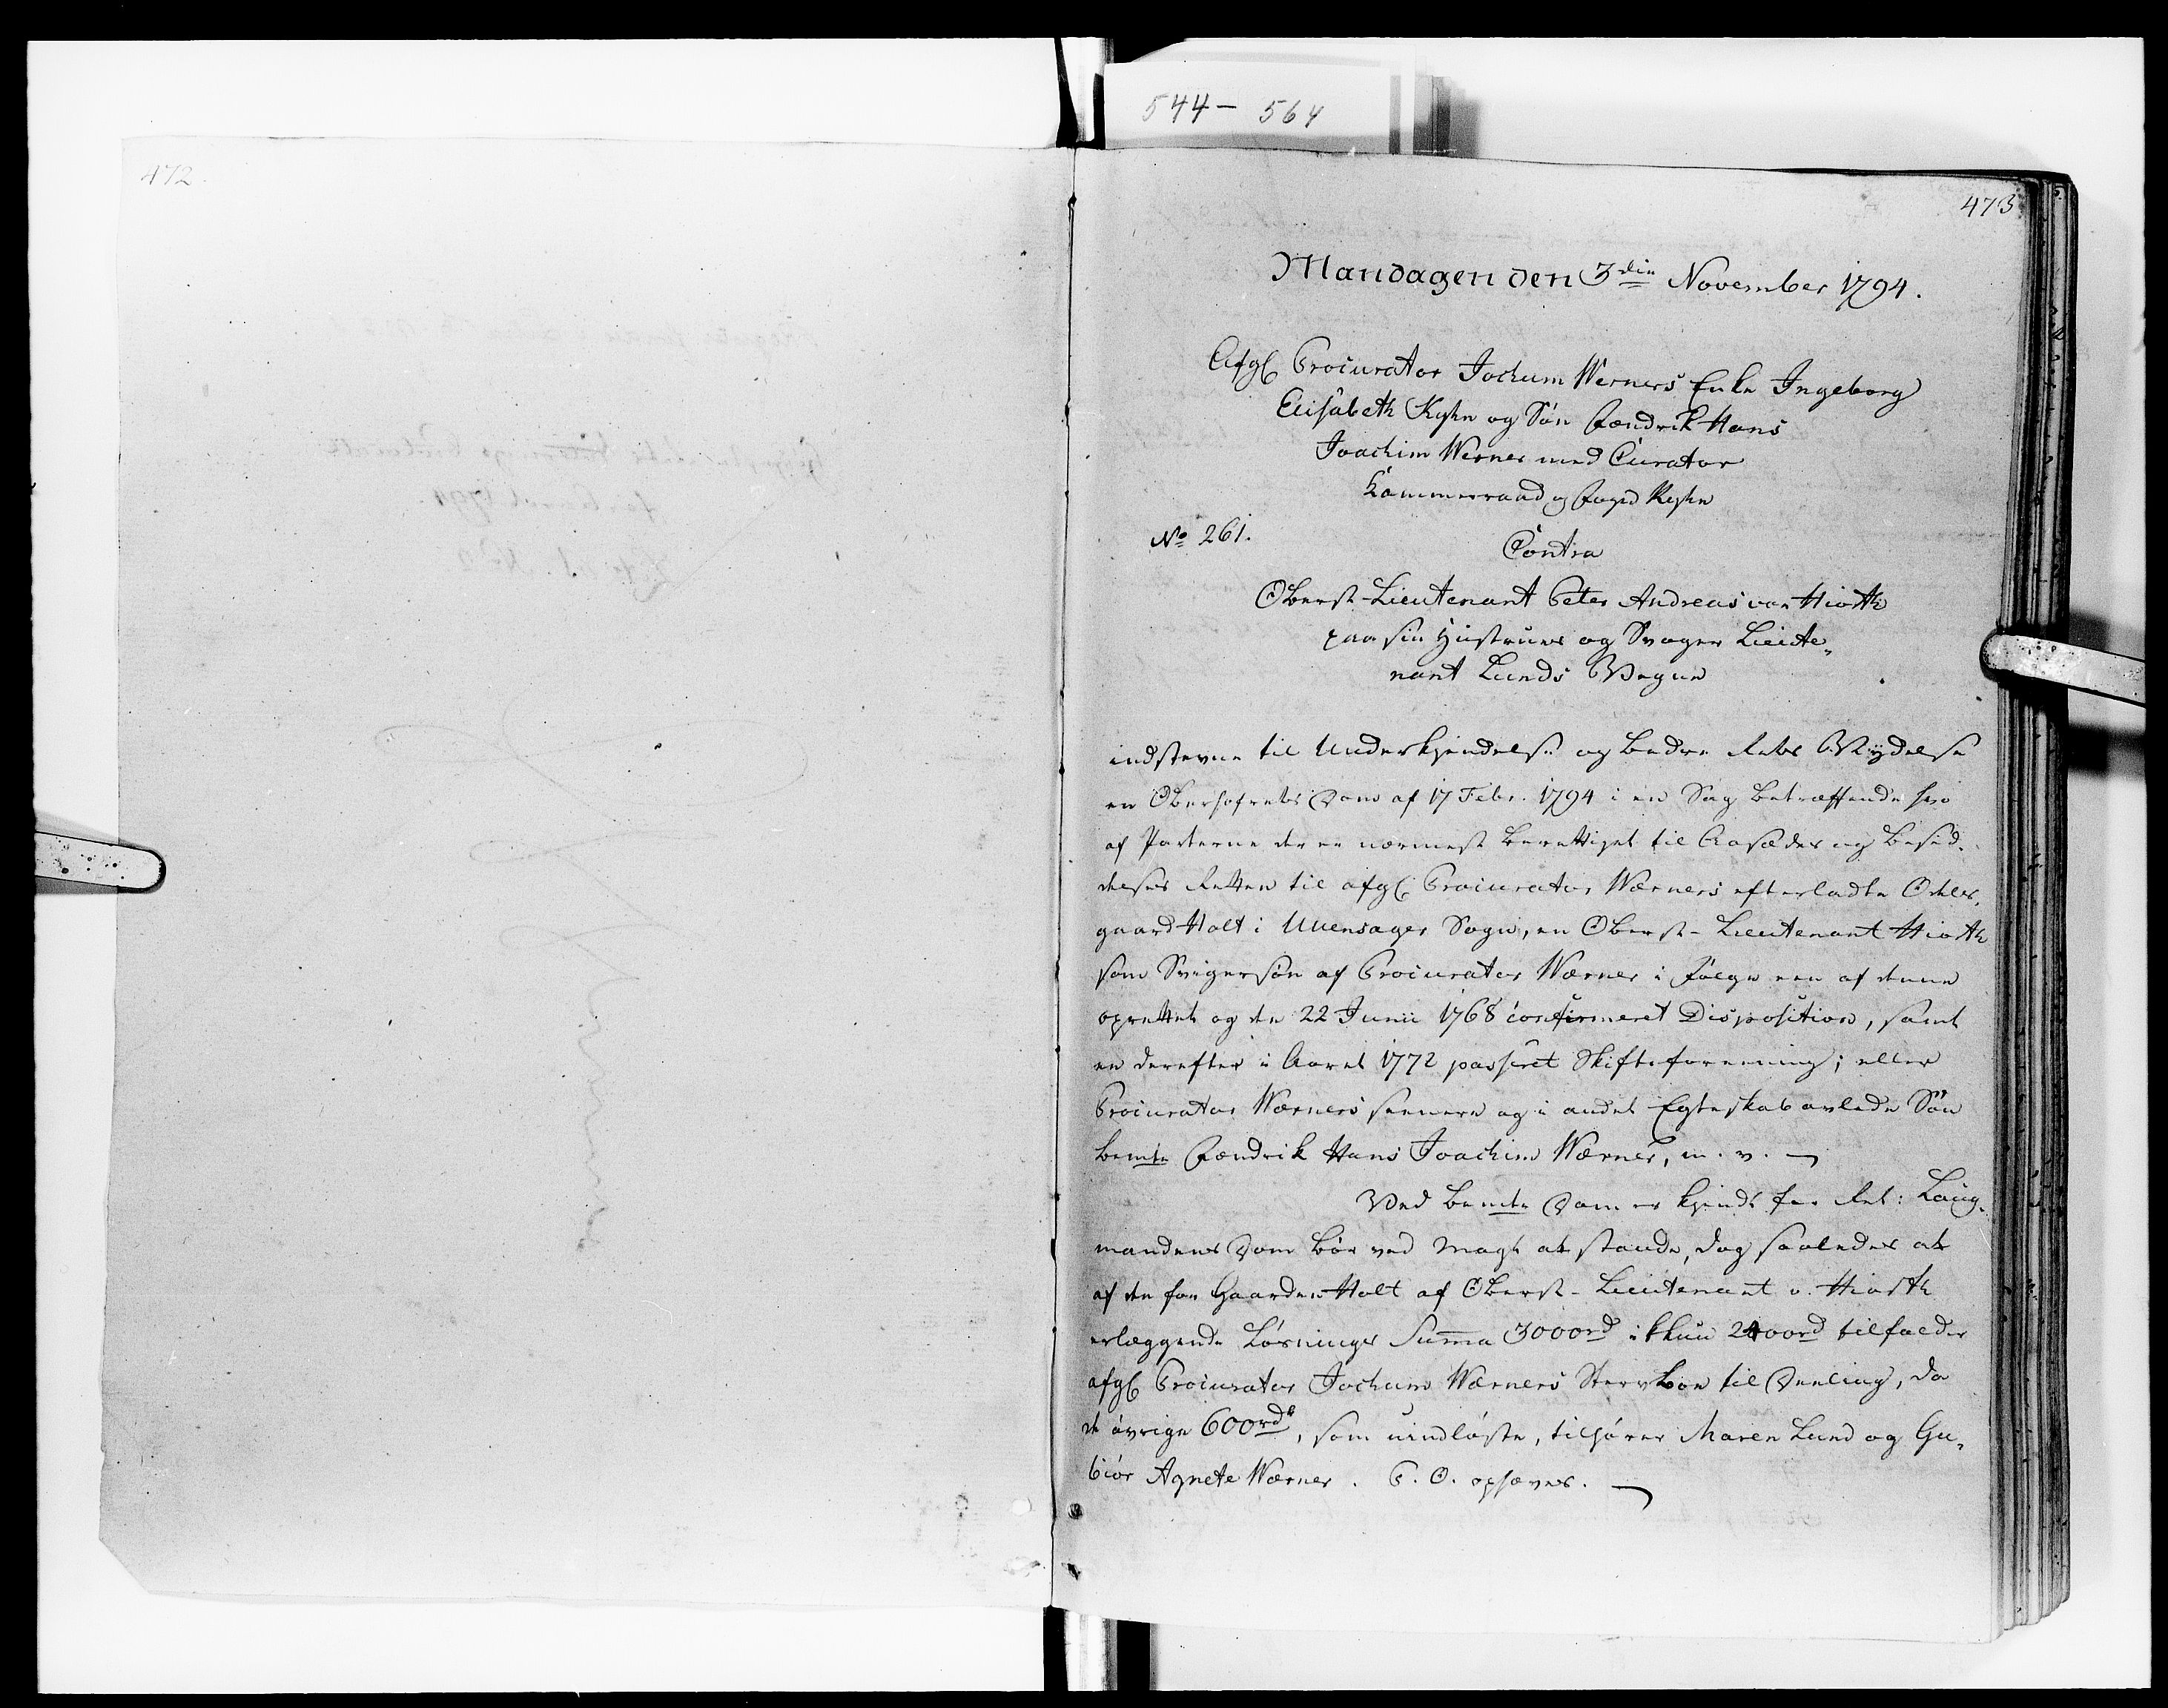 544 - 564
472.
473
Mandagen den 3die November 1794.
Afgl Procurator Jochum Werners Enke Ingeborg
Elisabeth Kyhn og Søn Fændrik Hans
Joachim Werner med Curator
Kammerraad og Foged Kyhn
No 261.
Contra
Oberst-Lieutenant Peter Andreas von Hiorth
paa sin Hustrues og Svoger Lieute-
nant Lunds Vegne
indstevne til Underkjendelse og bedre Rets Nydelse
en Oberhofrets Dom af 17 Febr. 1794 i en Sag betræffende hvo
af Parterne der er nærmest berettiget til Aasædes og besid-
delses Retten til afgl Procurator Wærners efterladte Odels-
gaard Holt i Unensager Sogn, en Oberst-Lieutenant Hiorth
som Svigersøn af Procurator Wærner i Følge een af denne
oprettet og den 22 Junii 1768 confirmeret Disposition, samt
en derefter i Aaret 1772 passeret Skifteforening; eller
Procurator Wærners senere og i andet Egteskab avlede Søn
bemte Fændrik Hans Joachim Wærner, m. v.
Ved bemte Dom er kjendt for Ret: Laug-
mandens Dom bør ved Magt at stande, dog saaledes at
af den for Gaarden Holt af Oberst-Lieutenant v. Hiorth
erlæggende Løsnings Summa 3000rd ikkun 2400rd tilfalder
afgl Procurator Jochum Wærners Stervboe til Deeling, da
de øvrige 600rdr, som uindløste, tilhører Maren Lund og Gu-
biør Agnete Wærner. P. O. ophæves.